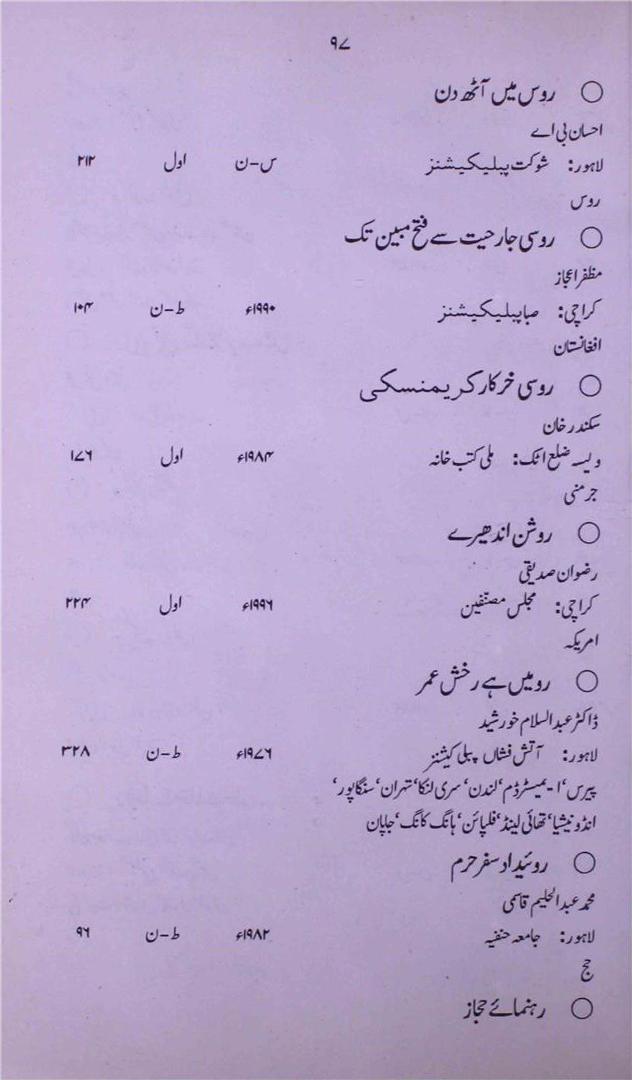 ۹۷
○ روس میں آٹھ دن
احسان بی اے
لاہور: شوکت پبلیکیشنز س-ن اول ۲۱۲
روس
○ روسی جارحیت سے فتح مبین تک
مظفر اعجاز
کراچی: صبا پبلیکیشنز ۱۹۹۰ء ط-ن ۱۰۴
افغانستان
○ روسی خرکار کریمنسکی
سکندر خان
ویسہ ضلع اٹک: ملی کتب خانہ ۱۹۸۴ء اول ۱۷۶
جرمنی
○ روشن اندھیرے
رضوان صدیقی
کراچی: مجلس مصنّفین ۱۹۹۶ء اول ۲۲۴
امریکہ
○ رو میں ہے رخش عمر
ڈاکٹر عبدالسلام خورشید
لاہور: آتش فشاں پبلی کیشنز ۱۹۷۶ء ط-ن ۳۲۸
پیرس‘ ا-یمسٹرڈم‘ لندن‘ سری لنکا‘ تہران‘ سنگاپور‘
انڈونیشیا‘ تھائی لینڈ‘ فلپائن‘ ہانگ کانگ‘ جاپان
○ روئیداد سفر حرم
محمد عبدالحلیم قاسمی
لاہور: جامعہ حنفیہ ۱۹۸۲ء ط-ن ۹۶
حج
○ رہنمائے حجاز